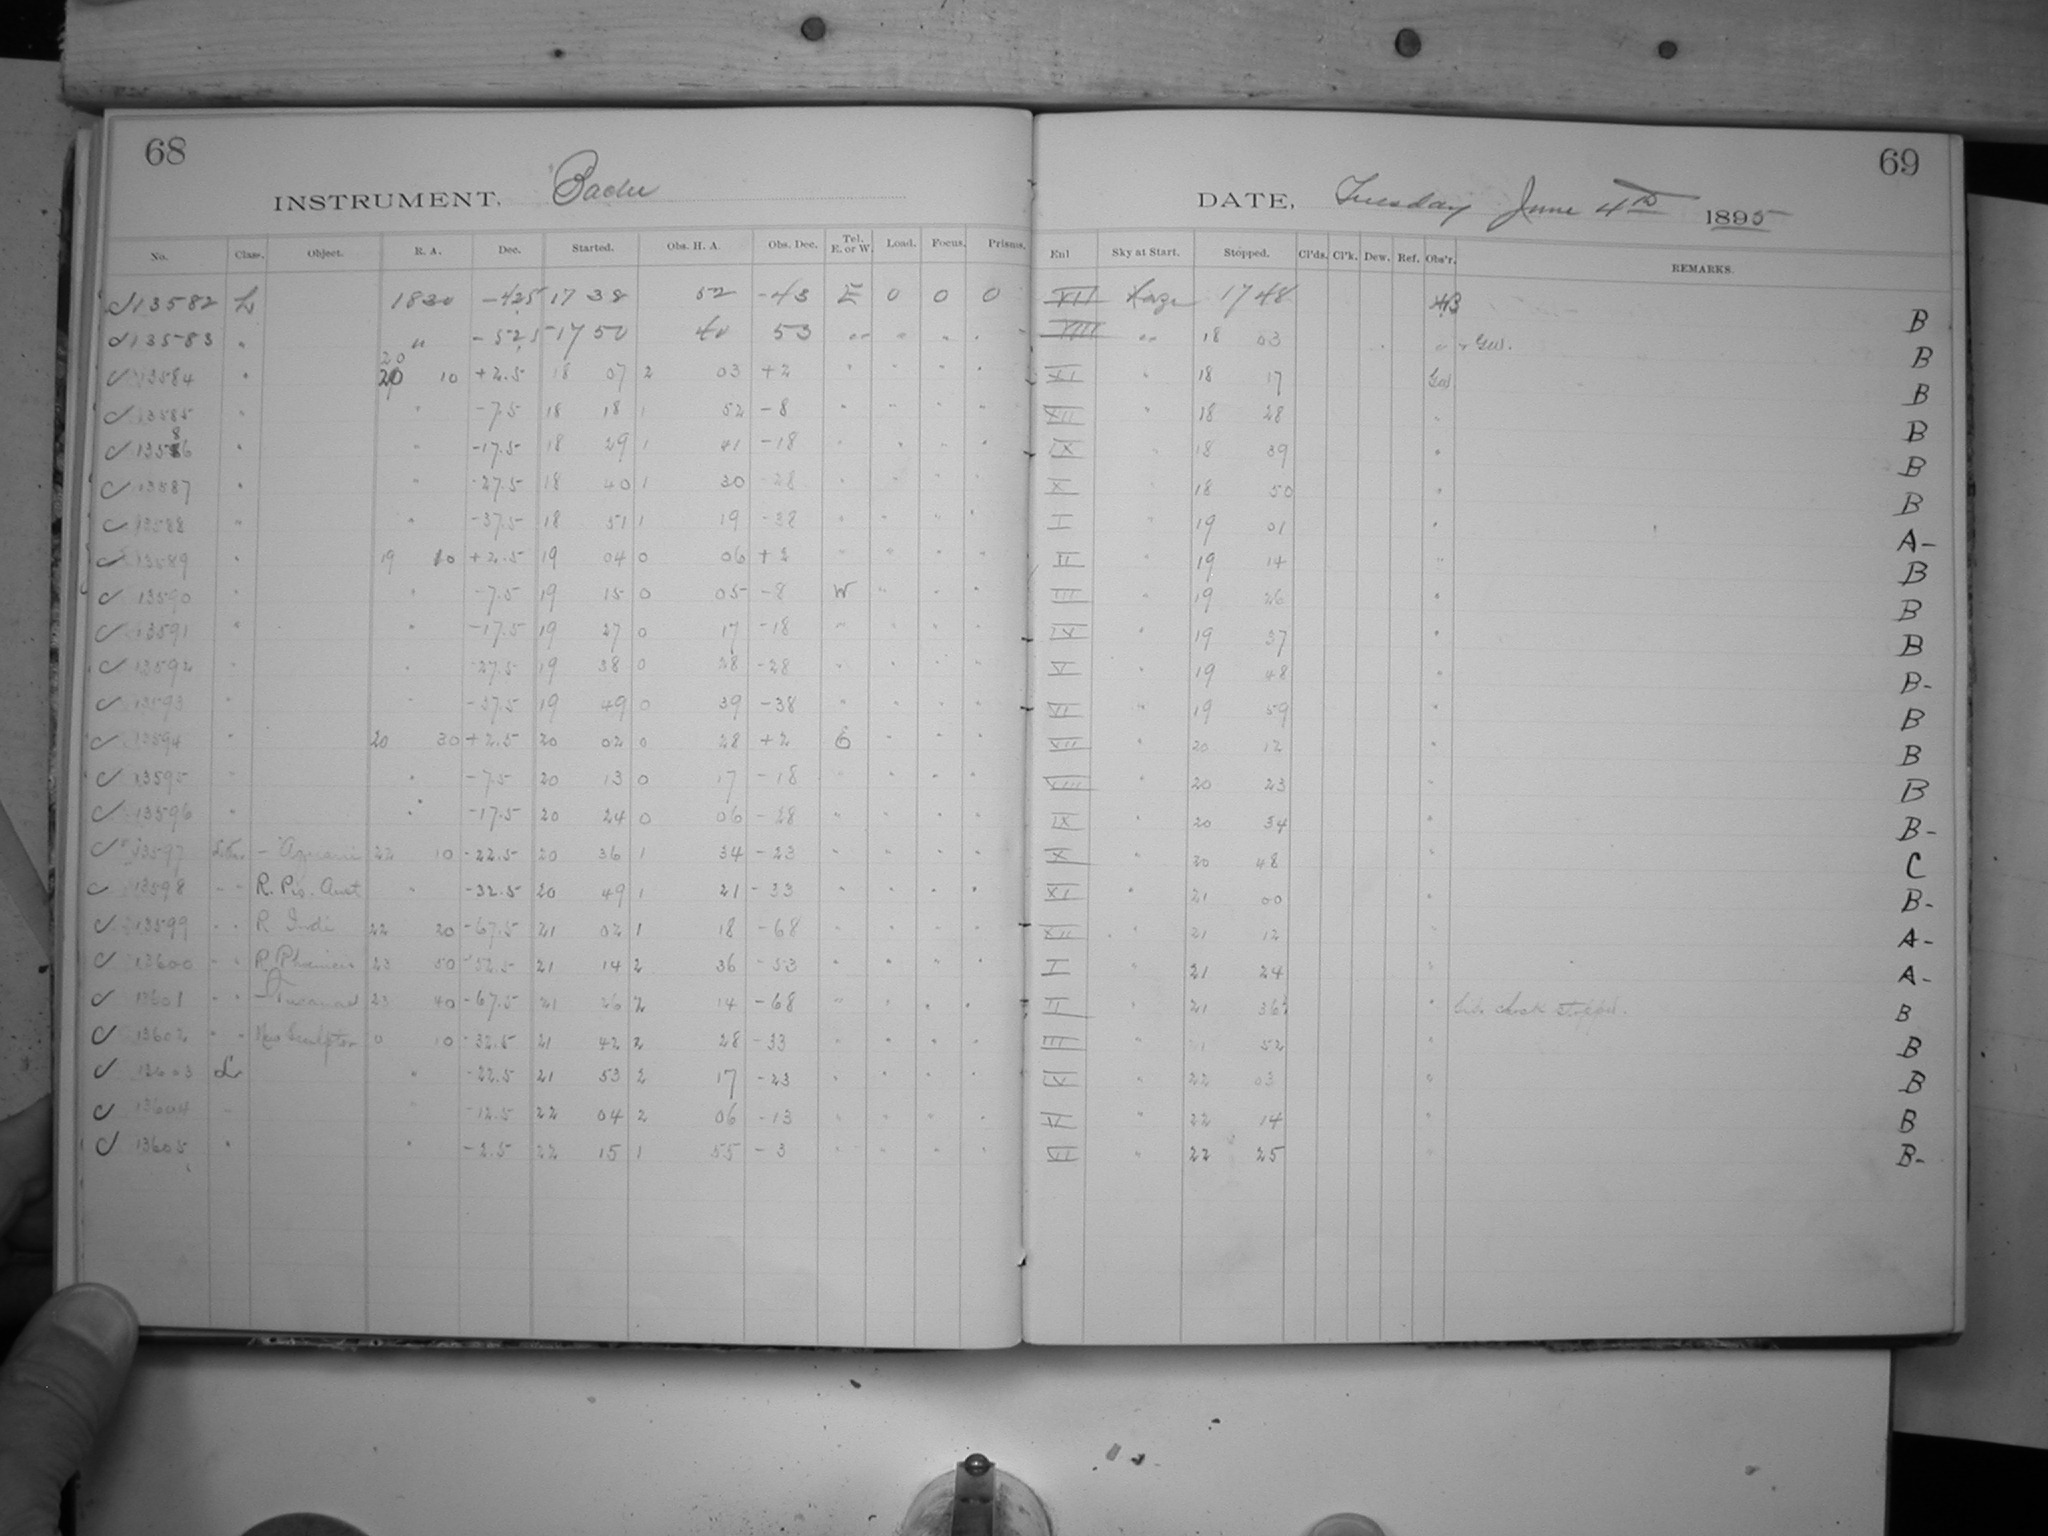 68
INSTRUMENT, Bache
No. Class. Object. R. A. Dec. Started. Obs. H. A. Obs. Dec. Tel. E. or W. Load. Focus. Prisms.
13582 L 1830 -42.5 17 38 52 -43 E 0 0 0
13583 " " -52.5 17 50 40 53 " " " "
13584 " 20 10 +2.5 18 07 2 03 +2 " " " "
13585 " " -7.5 18 18 1 52 -8 " " " "
13586 " " -17.5 18 29 1 41 -18 " " " "
13587 " " -27.5 18 40 1 30 -28 " " " "
13588 " " -37.5 18 51 1 19 -38 " " " "
13589 " 19 10 +2.5 19 04 0 06 +2 " " " "
13590 " " -7.5 19 15 0 05 -8 W " " "
13591 " " -17.5 19 27 0 17 -18 " " " "
13592 " " -27.5 19 38 0 28 -28 " " " "
13593 " " -37.5 19 49 0 39 -38 " " " "
13594 " 20 30 +2.5 20 02 0 28 +2 E " " "
13595 " " -7.5 20 13 0 17 -18 " " " "
13596 " " -17.5 20 24 0 06 -28 " " " "
13597 - Aquarii 22 10 -22.5 20 36 1 34 -23 " " " "
13598 " " R. Pis. Aust " -32.5 20 49 1 21 -33 " " " "
13599 " " R Indi 22 20 -67.5 21 02 1 18 -68 " " " "
13600 " " R Phoenicis 23 50 -52.5 21 14 2 36 -53 " " " "
13601 " " - Tucanae 23 40 -67.5 21 26 2 14 -68 " " " "
13602 " " Sculptor 0 10 -32.5 21 42 2 28 -33 " " " "
13603 L " -22.5 21 53 2 17 -23 " " " "
13604 " " -12.5 22 04 2 06 -13 " " " "
13605 " " -2.5 22 15 1 55 -3 " " " "
69
DATE, Tuesday June 4th 1895
Enl Sky at Start. Stopped. Cl'ds. Cl'k. Dew. Ref. Obs'r. REMARKS.
VII Haze 17 48 B
VIII " 18 03 " B
XI " 18 17 B
XII " 18 28 " B
IX " 18 39 " B
X " 18 50 " B
I " 19 01 " A-
II " 19 14 " B
III " 19 26 " B
IV " 19 37 " B
V " 19 48 " B-
VI " 19 59 " B
XII " 20 12 " B
VIII " 20 23 " B
IX " 20 34 " B-
X " 20 48 " C
XI " 21 00 " B-
XII " 21 12 " A-
I " 21 24 " A-
II " 21 36 " clock stopped. B
III " 21 52 " B
IV " 22 03 " B
V " 22 14 " B
VI " 22 25 " B-